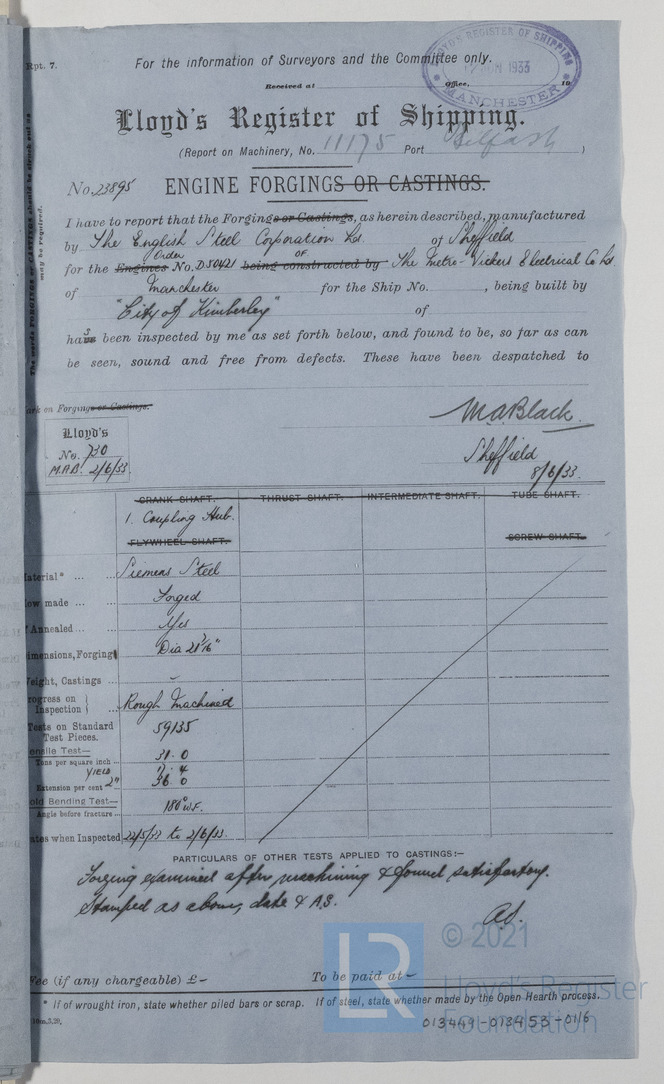 Rpt. 7.
For the information of Surveyors and the Committee only.
LLOYD'S REGISTER OF SHIPPING
JUN 1933
MANCHESTER
Received at Office, 19
Lloyd's Register of Shipping.
(Report on Machinery, No. 11175 Port Belfast )
No. 23895 ENGINE FORGINGS OR CASTINGS.
The words FORGINGS or CASTINGS should be struck out as may be required.
I have to report that the Forgings or Castings, as herein described, manufactured
by The English Steel Corporation Ltd. of Sheffield
for the Engines Order No. D50421 being constructed by OF The Metro-Vickers Electrical Co Ltd
of Manchester for the Ship No. , being built by
"City of Kimberley" of
has been inspected by me as set forth below, and found to be, so far as can
be seen, sound and free from defects. These have been despatched to
ark on Forgings or Castings.
M.A.Black.
Lloyd's
No. 730
M.A.B. 2/6/33
Sheffield
8/6/33.
CRANK SHAFT. THRUST SHAFT. INTERMEDIATE SHAFT. TUBE SHAFT.
1. Coupling Hub.
FLYWHEEL SHAFT. SCREW SHAFT.
aterial* ... ... Siemens Steel
ow made ... ... Forged
f Annealed ... ... Yes
imensions, Forging Dia
eight, Castings ... -
rogress on Inspection } ... Rough Machined
ests on Standard Test Pieces. 59135
ensile Test—
Tons per square inch ... 31.0
YIELD
Extension per cent 2" 36.0
old Bending Test—
Angle before fracture ... 180° W.F.
ates when Inspected 22/5/33 to 2/6/33.
PARTICULARS OF OTHER TESTS APPLIED TO CASTINGS:—
Forging examined after machining & found satisfactory.
Stamped as above, date & A.S.
A.S.
Fee (if any chargeable) £- To be paid at -
* If of wrought iron, state whether piled bars or scrap. If of steel, state whether made by the Open Hearth process.
10m.3.29.
LR
© 2021
Lloyd's Register
Foundation
013449-013453-0116